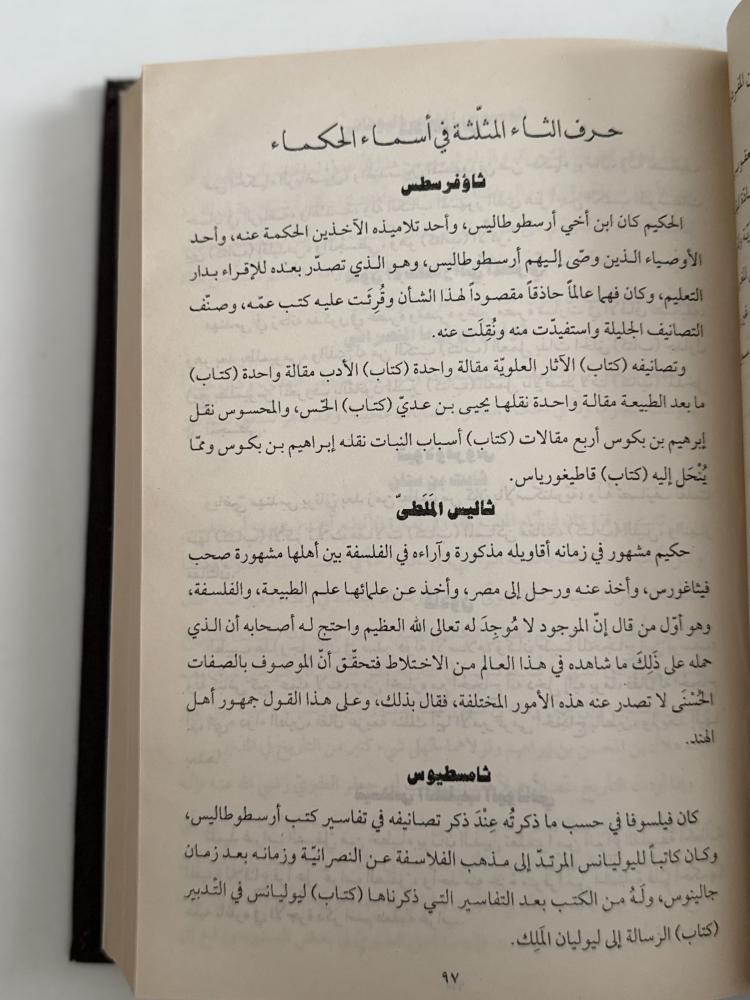 حرف الثاء المثلّثة في أسماء الحكماء
ثاؤفرسطس
الحكيم كان ابن أخي أرسطوطاليس، وأحد تلاميذه الآخذين الحكمة عنه، وأحد
الأوصياء الذين وصّى إليهم أرسطوطاليس، وهو الذي تصدّر بعده للإقراء بدار
التعليم، وكان فهما عالماً حاذقاً مقصوداً لهذا الشأن وقُرِئَت عليه كتب عمّه، وصنّف
التصانيف الجليلة واستفيدّت منه ونُقِلَت عنه.
وتصانيفه (كتاب) الآثار العلويّة مقالة واحدة (كتاب) الأدب مقالة واحدة (كتاب)
ما بعد الطبيعة مقالة واحدة نقلها يحيى بن عديّ (كتاب) الحَس، والمحسوس نقل
إبرهيم بن بكوس أربع مقالات (كتاب) أسباب النبات نقله إبراهيم بن بكوس وممّا
يُنْحَل إليه (كتاب) قاطيغورياس.
ثاليس المَلَطيّ
حكيم مشهور في زمانه أقاويله مذكورة وآراءه في الفلسفة بين أهلها مشهورة صحب
فيثاغورس، وأخذ عنه ورحل إلى مصر، وأخذ عن علمائها علم الطبيعة، والفلسفة،
وهو أوّل من قال إنّ الموجود لا مُوجِدَ له تعالى الله العظيم واحتج له أصحابه أن الذي
حمله على ذَلِكَ ما شاهده في هذا العالم من الاختلاط فتحقّق أنّ الموصوف بالصفات
الحُسْنَى لا تصدر عنه هذه الأمور المختلفة، فقال بذلك، وعلى هذا القول جمهور أهل
الهند.
ثامسطيوس
كان فيلسوفا في حسب ما ذكرتُه عِنْدَ ذكر تصانيفه في تفاسير كتب أرسطوطاليس،
وكان كاتباً لليوليانس المرتدّ إلى مذهب الفلاسفة عن النصرانيّة وزمانه بعد زمان
جالينوس، ولَهُ من الكتب بعد التفاسير التي ذكرناها (كتاب) ليوليانس في التّدبير
(كتاب) الرسالة إلى ليوليان المَلِك.
٩٧